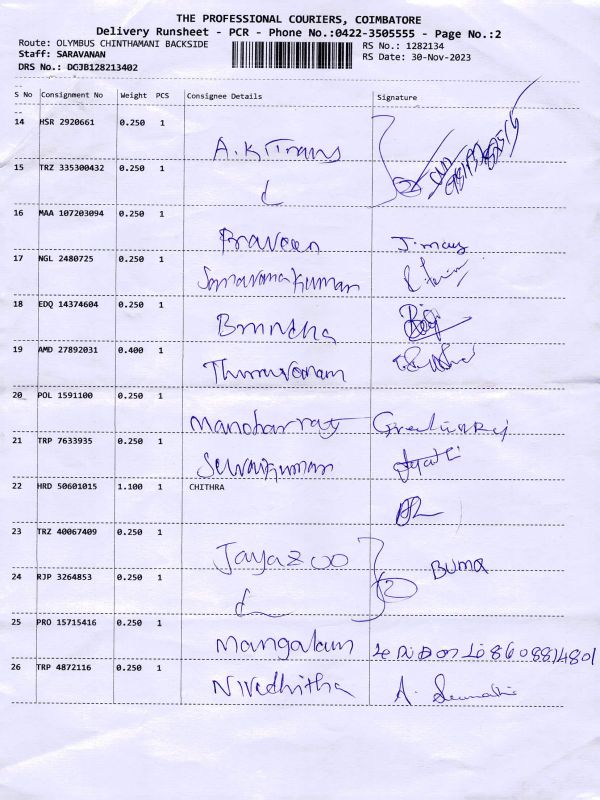 THE PROFESSIONAL COURIERS, COIMBATORE
Delivery Runsheet - PCR - Phone No.:0422-3505555 - Page No.:2
Route: OLYMBUS CHINTHAMANI BACKSIDE RS No.: 1282134
Staff: SARAVANAN RS Date: 30-Nov-2023
DRS No.: DCJB128213402
S No Consignment No Weight PCS Consignee Details Signature
14 HSR 2920661 0.250 1 A.K Trans
15 TRZ 335300432 0.250 1
16 MAA 107203094 0.250 1 Praveen
17 NGL 2480725 0.250 1 Saravanakumar
18 EDQ 14374604 0.250 1 Brindha
19 AMD 27892031 0.400 1
20 POL 1591100 0.250 1 Manoharraj
21 TRP 7633935 0.250 1 Selvakumar
22 HRD 50601015 1.100 1 CHITHRA
23 TRZ 40067409 0.250 1 Jayazoo
24 RJP 3264853 0.250 1 Buma
25 PRO 15715416 0.250 1 Mangalam 8608814801
26 TRP 4872116 0.250 1 Nivedhitha A.